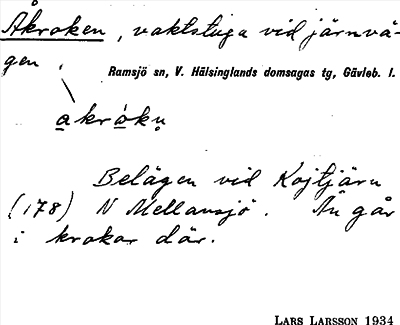 Åkroken, vaktstuga vid järnvä-
gen.
Ramsjö sn, V. Hälsinglands domsagas tg, Gävleb. l.
a kròkṇ
Belägen vid Kojtjärn
(178) N Mellansjö. Ån går
i krokar där.
LARS LARSSON 1934